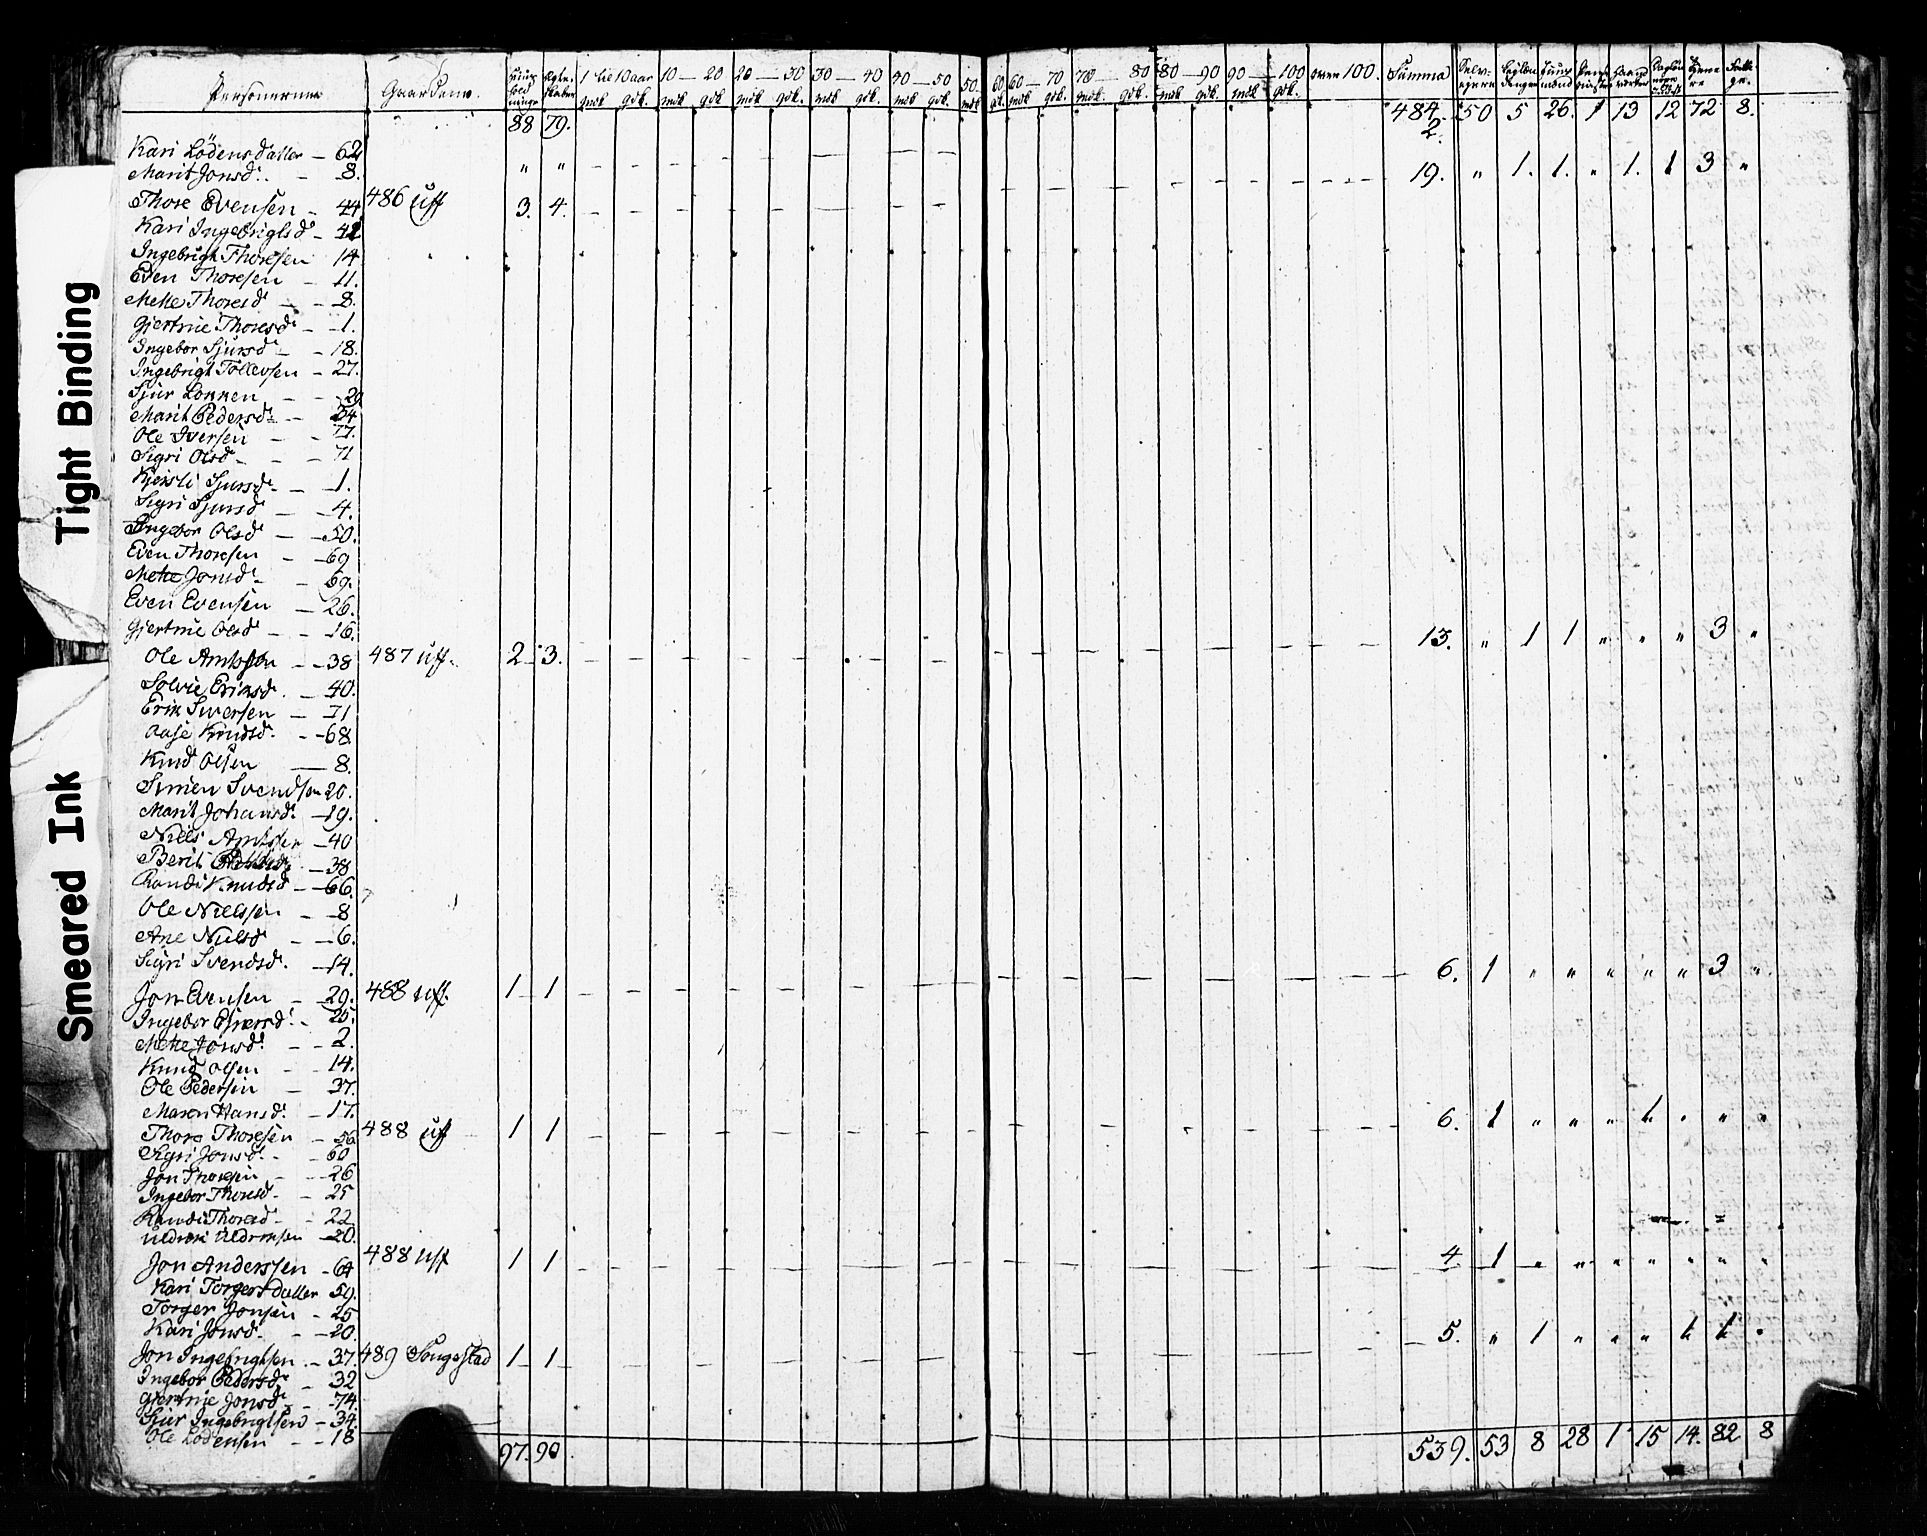 Tight Binding
Smeared Ink
Personerne Gaardene. 1 til 10 aar 10 — 20 20 — 30 30 — 40 40 — 50 50 60 60 — 70 70 — 80 80 — 90 90 — 100 over 100. Summa
mdk gdk. mdk gdk mdk gdk. mdk gdk. mdk gdk. mdk gdk. mdk gdk. mdk. gdk. mdk gdk. mdk gdk.
88 79. 484. 50 5 26. 1 13 12 72 8.
2.
Kari Lødens datter — 62
Marit Jonsd. — 8. " " 19. " 1. 1. " 1. 1 3 "
Thore Evensen — 44 486 Uff 3. 4.
Kari Ingebrigtsd — 42
Ingebrigt Thoresen 14
Even Thoresen — 11.
Mette Thoresd — 8.
Gjertrue Thoresd — 1.
Ingebor Sjursd — 18.
Ingebrigt Tollevsen — 27.
Sjur Lonnen — 29
Marit Pedersd — 34
Ole Iversen — 77.
Sigri Olsd — 71
Kjersti Sjursd — 1.
Sigri Sjursd — 4.
Ingebor Olsd — 50.
Even Thoresen — 69
Mette Jonsd — 69.
Even Evensen — 26.
Gjertrue Olsd — 16. 13. " 1 1 " " " 3 "
Ole — 38 487 uff. 2 3.
Solvie Eriksd. — 40.
Erik Iversen — 71
Aase Knudsd. — 68
Knud Olsen — 8.
Simen Svendsen 20.
Marit Johansd. — 19.
Niels — 40
Berit — 38
Randi Knudsd — 66
Ole Nielssen — 8
Ane Nielsd — 6.
Sigri Svendsd. — 14. 6. 1 " " " " " 3 "
Jon Evensen — 29. 488 uff. 1 1
Ingebor — 25.
Mette Jonsd. — 2.
Knud Olsen — 14.
Ole Pedersen — 37.
Maren Hansd. — 17. 6. 1 " " " 1. " " "
Thore Thoresen — 56 488 uff 1 1
Sigri Jonsd. — 60
Jon Thoresen — 26
Ingebor Thoresd. — 25
Randi Thoresd — 22
— 20.
Jon Anderssen — 64 488 Uff 1 1 4 1 " " " " " " "
Kari Torgersdatter 59.
Torger Jonsen — 25
Kari Jonsd. — 20. 5. " 1 " " " 1 1 "
Jon Ingebrigtsen — 37. 489 Sougestad 1 1
Ingebor Pedersd — 32
Gjertrue Jonsd — 74.
Sjur Ingebrigtsen — 34.
Ole Lødensen — 18
97. 90 539. 53 8 28 1 15 14. 82 8